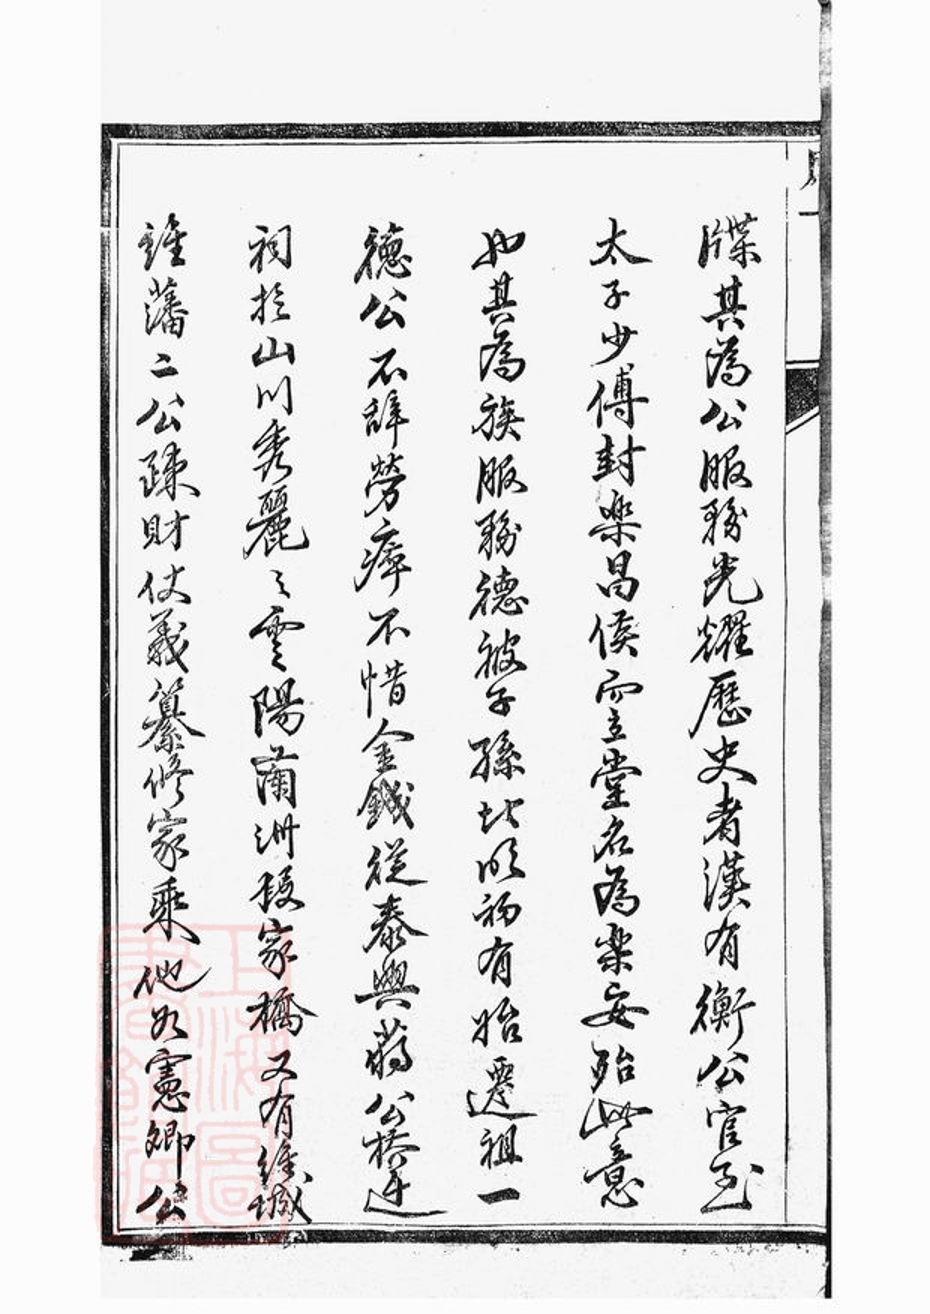 牒其為公服務光耀歷史者漢有衡公官至
太子少傅封樂昌侯而立堂名為樂安殆此意
也其為族服務德被子孫者明初有始遷祖一
德公不辭勞瘁不惜金錢從泰興蔣公橋遷
祠於山川秀麗之雲陽蘭洲段家橋又有維城
維藩二公疎財仗義纂修家乘他如憲卿公
上海圖書館藏